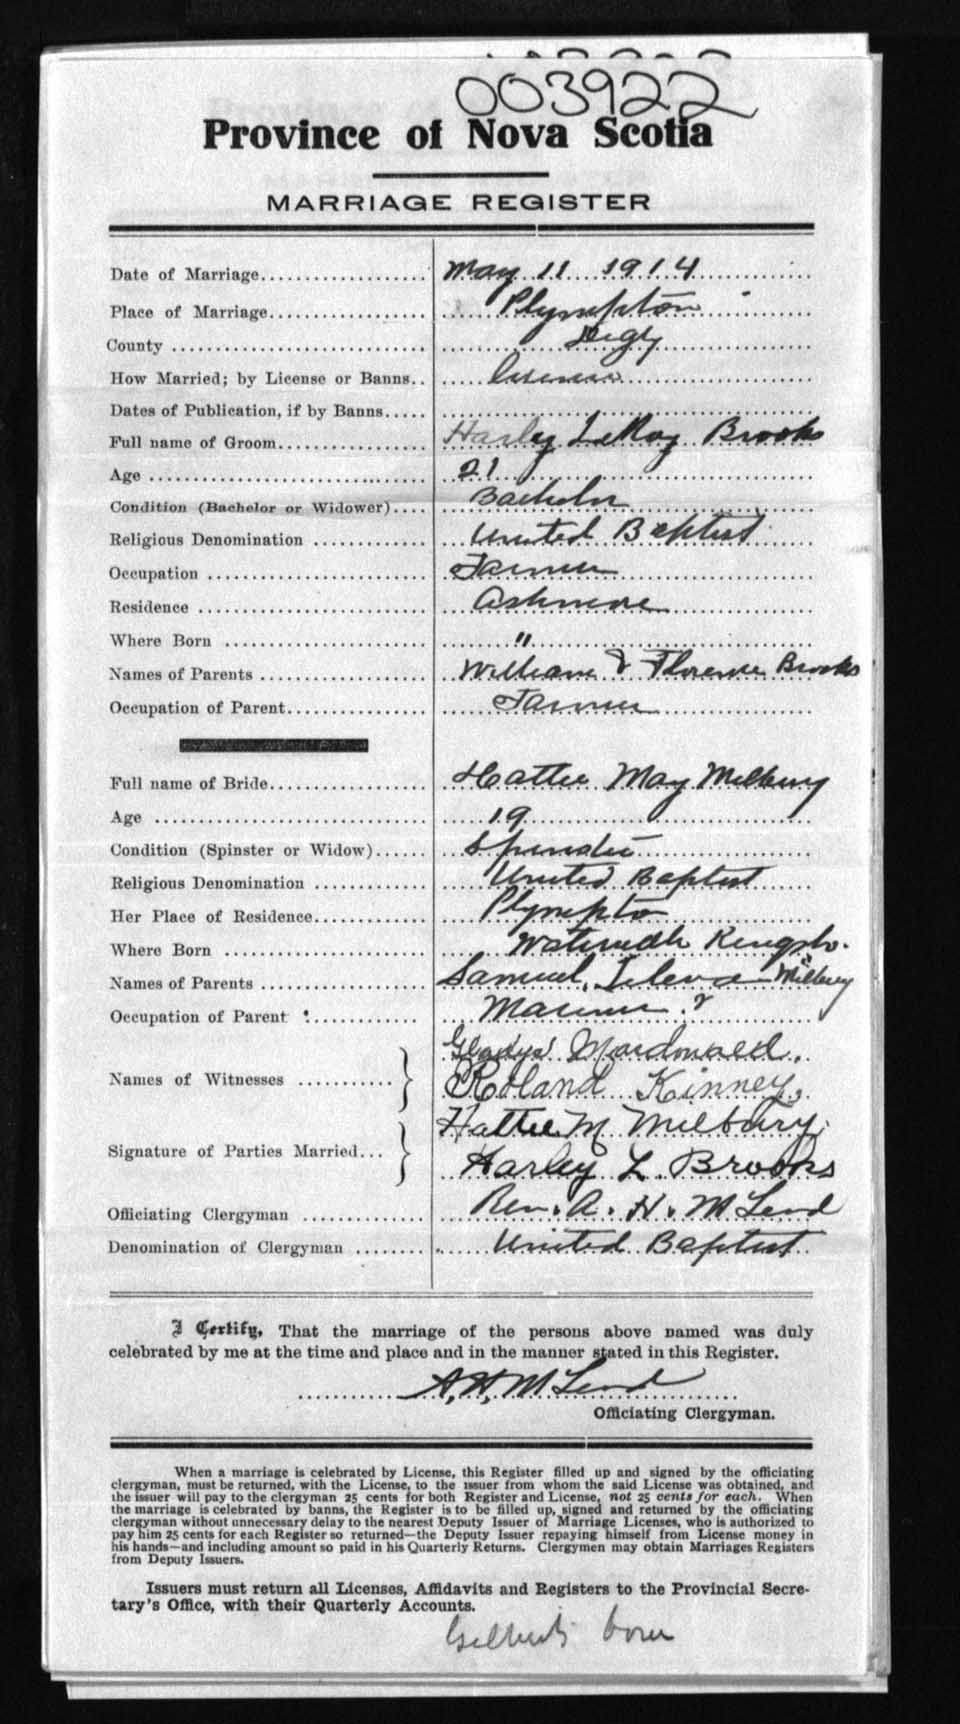 003922
Province of Nova Scotia
MARRIAGE REGISTER
Date of Marriage.................... May 11 1914
Place of Marriage................... Plympton
County .............................. Digby
How Married; by License or Banns.. license
Dates of Publication, if by Banns.....
Full name of Groom.................. Harley LeRoy Brooks
Age ................................. 21
Condition (Bachelor or Widower).... Bachelor
Religious Denomination ............. United Baptist
Occupation .......................... Farmer
Residence ........................... Ashmore
Where Born ........................ "
Names of Parents .................... William & Florence Brooks
Occupation of Parent................. Farmer
Full name of Bride................... Hattie May Milbury
Age ................................. 19
Condition (Spinster or Widow)...... Spinster
Religious Denomination ............. United Baptist
Her Place of Residence............. Plympton
Where Born ........................ Kingsbo.
Names of Parents .................... Samuel, Milbury
Occupation of Parent ............. Mariner ?
Names of Witnesses ........... } Gladys Macdonald.
Roland Kinney.
Signature of Parties Married... } Hattie M Milbury.
Harley L. Brooks
Officiating Clergyman .............. Rev. A. H. McLeod
Denomination of Clergyman ........ United Baptist
I Certify, That the marriage of the persons above named was duly
celebrated by me at the time and place and in the manner stated in this Register.
A. H. McLeod
Officiating Clergyman.
When a marriage is celebrated by License, this Register filled up and signed by the officiating
clergyman, must be returned, with the License, to the issuer from whom the said License was obtained, and
the issuer will pay to the clergyman 25 cents for both Register and License, not 25 cents for each. When
the marriage is celebrated by banns, the Register is to be filled up, signed and returned by the officiating
clergyman without unnecessary delay to the nearest Deputy Issuer of Marriage Licenses, who is authorized to
pay him 25 cents for each Register so returned—the Deputy Issuer repaying himself from License money in
his hands—and including amount so paid in his Quarterly Returns. Clergymen may obtain Marriages Registers
from Deputy Issuers.
Issuers must return all Licenses, Affidavits and Registers to the Provincial Secre-
tary's Office, with their Quarterly Accounts.
Gilberts Cove